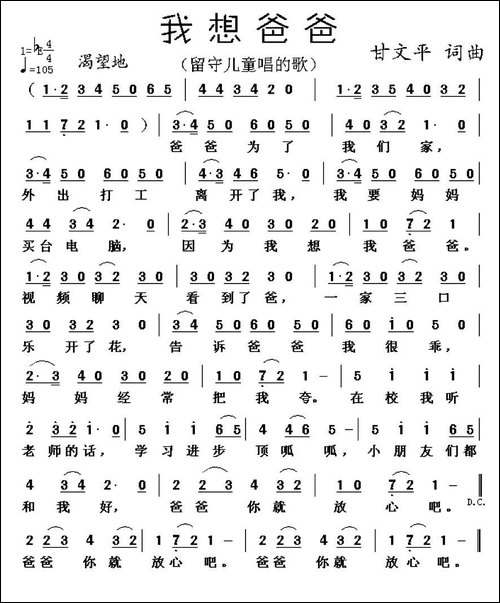 我想爸爸
1=♭E 4/4
♩=105 渴望地 （留守儿童唱的歌） 甘文平 词曲
( 1·2 34 50 65 | 1·2 35 40 32 |
11 72 1·0 ) | 3·4 50 60 50 | 40 32 1·0 |
爸爸为了 我们家，
3·4 50 60 50 | 4·3 40 50 | 3·4 50 60 50 |
外出打工 离开了我， 我要妈妈
44 34 2·0 | 2·3 40 50 40 | 10 72 1 – |
买台电脑， 因为我想 我爸爸。
1·2 30 32 30 | 2·2 35 2·0 | 1·2 30 60 50 |
视频聊天 看到了爸， 一家三口
30 30 2·0 | 34 50 50 50 | 60 i0 5·0 |
乐开了花， 告诉爸爸 我很乖，
2·3 40 30 20 | 10 72 1 – | 5 i i i |
妈妈经常把 我夸。 在校我听
2 32 i·0 | 5 i i 65 | 34 56 5·0 | i i 65 5 |
老师的话， 学习进步 顶呱呱， 小朋友们都
4 34 2·0 | 22 3 43 2 | 1 72 1 – | D.C.
和我好， 爸爸你就 放心吧。
22 3 43 2 | 1 72 1 – | 22 3 43 2 | 1 72 1 – ‖
爸爸你就 放心吧。爸爸你就 放心吧。